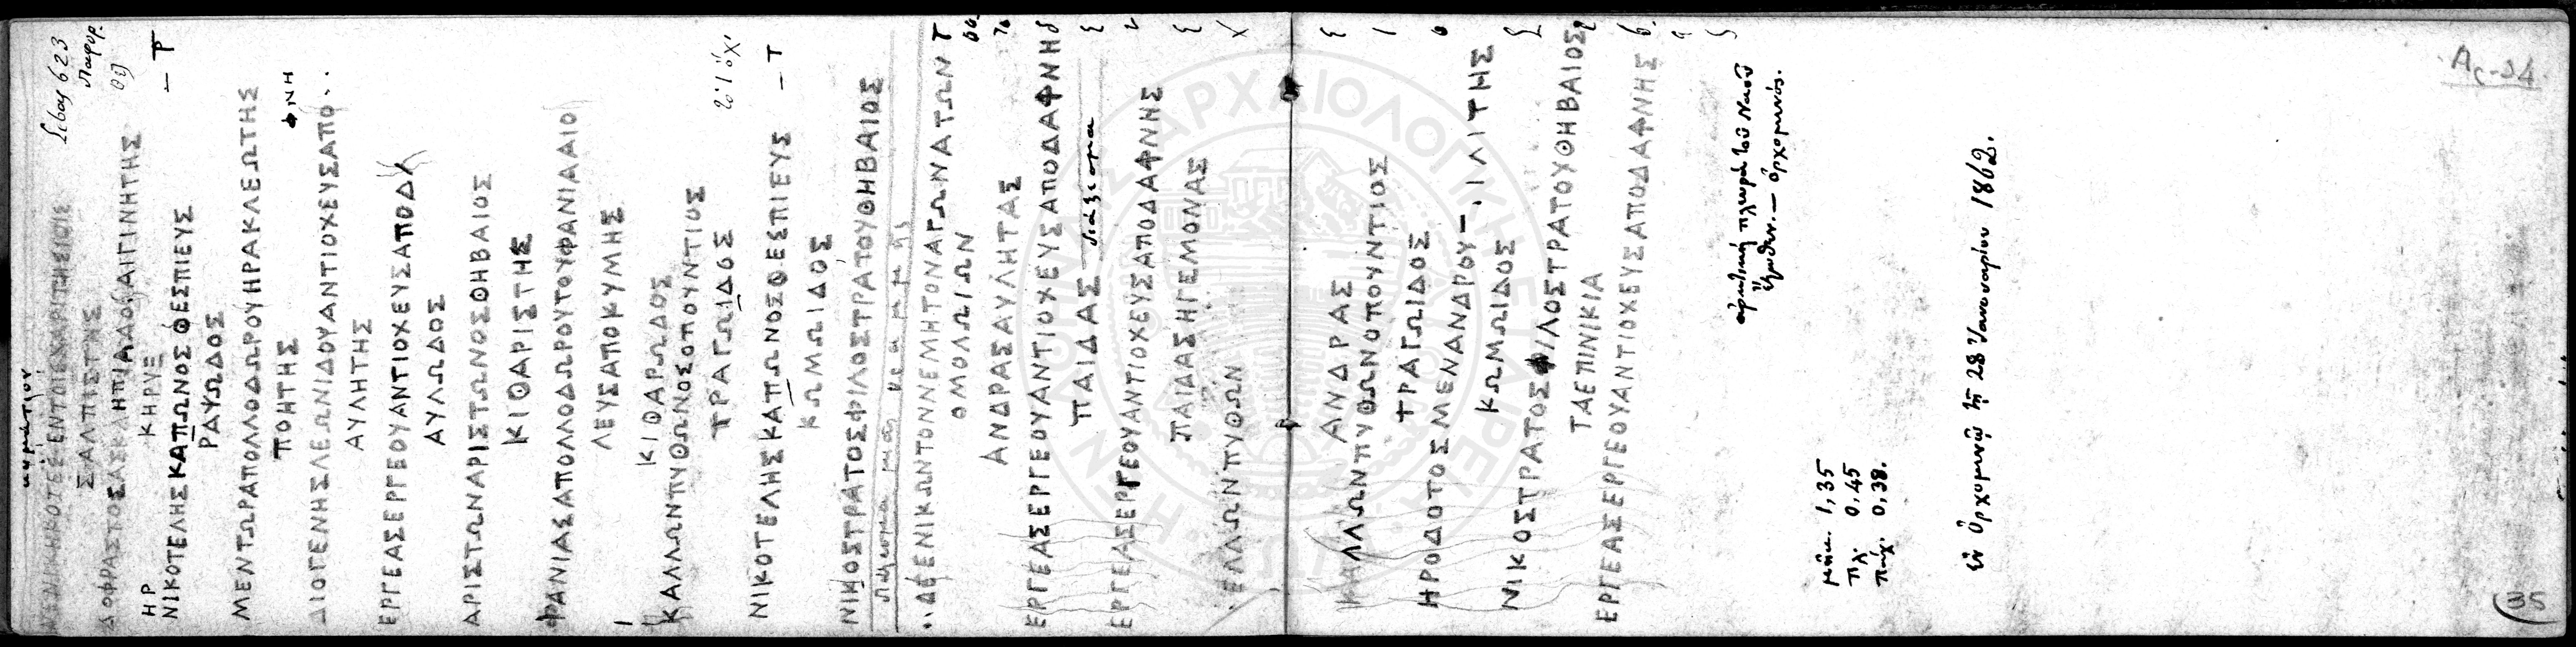 ΣΑΛΠΙΣΤΗΣ
ΚΗΡΥΞ
ΝΙΚΟΤΕΛΗΣΚΑΠΩΝΟΣΘΕΣΠΙΕΥΣ
ΡΑΥΩΔΟΣ
ΜΕΝΤΩΡΑΠΟΛΛΟΔΩΡΟΥΗΡΑΚΛΕΩΤΗΣ
ΠΟΗΤΗΣ
ΔΙΟΓΕΝΗΣΛΕΩΝΙΔΟΥΑΝΤΙΟΧΕΥΣΑΠΟ..
ΦΝΗ
ΑΥΛΗΤΗΣ
ΕΡΓΕΑΣΕΡΓΕΟΥΑΝΤΙΟΧΕΥΣΑΠΟΔΑ
ΑΥΛΩΔΟΣ
ΑΡΙΣΤΩΝΑΡΙΣΤΩΝΟΣΘΗΒΑΙΟΣ
ΚΙΘΑΡΙΣΤΗΣ
ΦΑΝΙΑΣΑΠΟΛΛΟΔΩΡΟΥΤΟΥΦΑΝΙΑΑΙΟ
ΛΕΥΣΑΠΟΚΥΜΗΣ
ΚΙΘΑΡΩΔΟΣ
ΚΑΛΛΩΝΠΥΘΩΝΟΣΟΠΟΥΝΤΙΟΣ
ΤΡΑΓΩΙΔΟΣ
ΝΙΚΟΤΕΛΗΣΚΑΠΩΝΟΣΘΕΣΠΙΕΥΣ
ΚΩΜΩΙΔΟΣ
ΝΙΚΟΣΤΡΑΤΟΣΦΙΛΟΣΤΡΑΤΟΥΘΗΒΑΙΟΣ
..ΔΕΕΝΙΚΩΝΤΟΝΝΕΜΗΤΟΝΑΓΩΝΑΤΩΝ
ΟΜΟΛΩΙΩΝ
ΑΝΔΡΑΣΑΥΛΗΤΑΣ
ΕΡΓΕΑΣΕΡΓΕΟΥΑΝΤΙΟΧΕΥΣΑΠΟΔΑΦΝΗ
ΠΑΙΔΑΣ
ΕΡΓΕΑΣΕΡΓΕΟΥΑΝΤΙΟΧΕΥΣΑΠΟΔΑΦΝΗΣ
ΠΑΙΔΑΣΗΓΕΜΟΝΑΣ
ΕΛΛΩΝΠΥΘΩΝ
ΑΝΔΡΑΣ
ΚΑΛΛΩΝΠΥΘΩΝΟΠΟΥΝΤΙΟΣ
ΤΡΑΓΩΙΔΟΣ
ΗΡΟΔΟΤΟΣΜΕΝΑΝΔΡΟΥ–.ΙΛΙΤΗΣ
ΚΩΜΩΙΔΟΣ
ΝΙΚΟΣΤΡΑΤΟΣΦΙΛΟΣΤΡΑΤΟΥΘΗΒΑΙΟΣ
ΤΑΕΠΙΝΙΚΙΑ
ΕΡΓΕΑΣΕΡΓΕΟΥΑΝΤΙΟΧΕΥΣΑΠΟΔΑΦΝΗΣ
ἀρκτικὴ πλευρὰ τοῦ Ναοῦ
ἔξωθεν. — Ὀρχομενός.
μῆκ. 1,35
πλ. 0,45
πάχ. 0,38.
ἐν Ὀρχομενῷ τῇ 28 Ἰανουαρίου 1862.
35